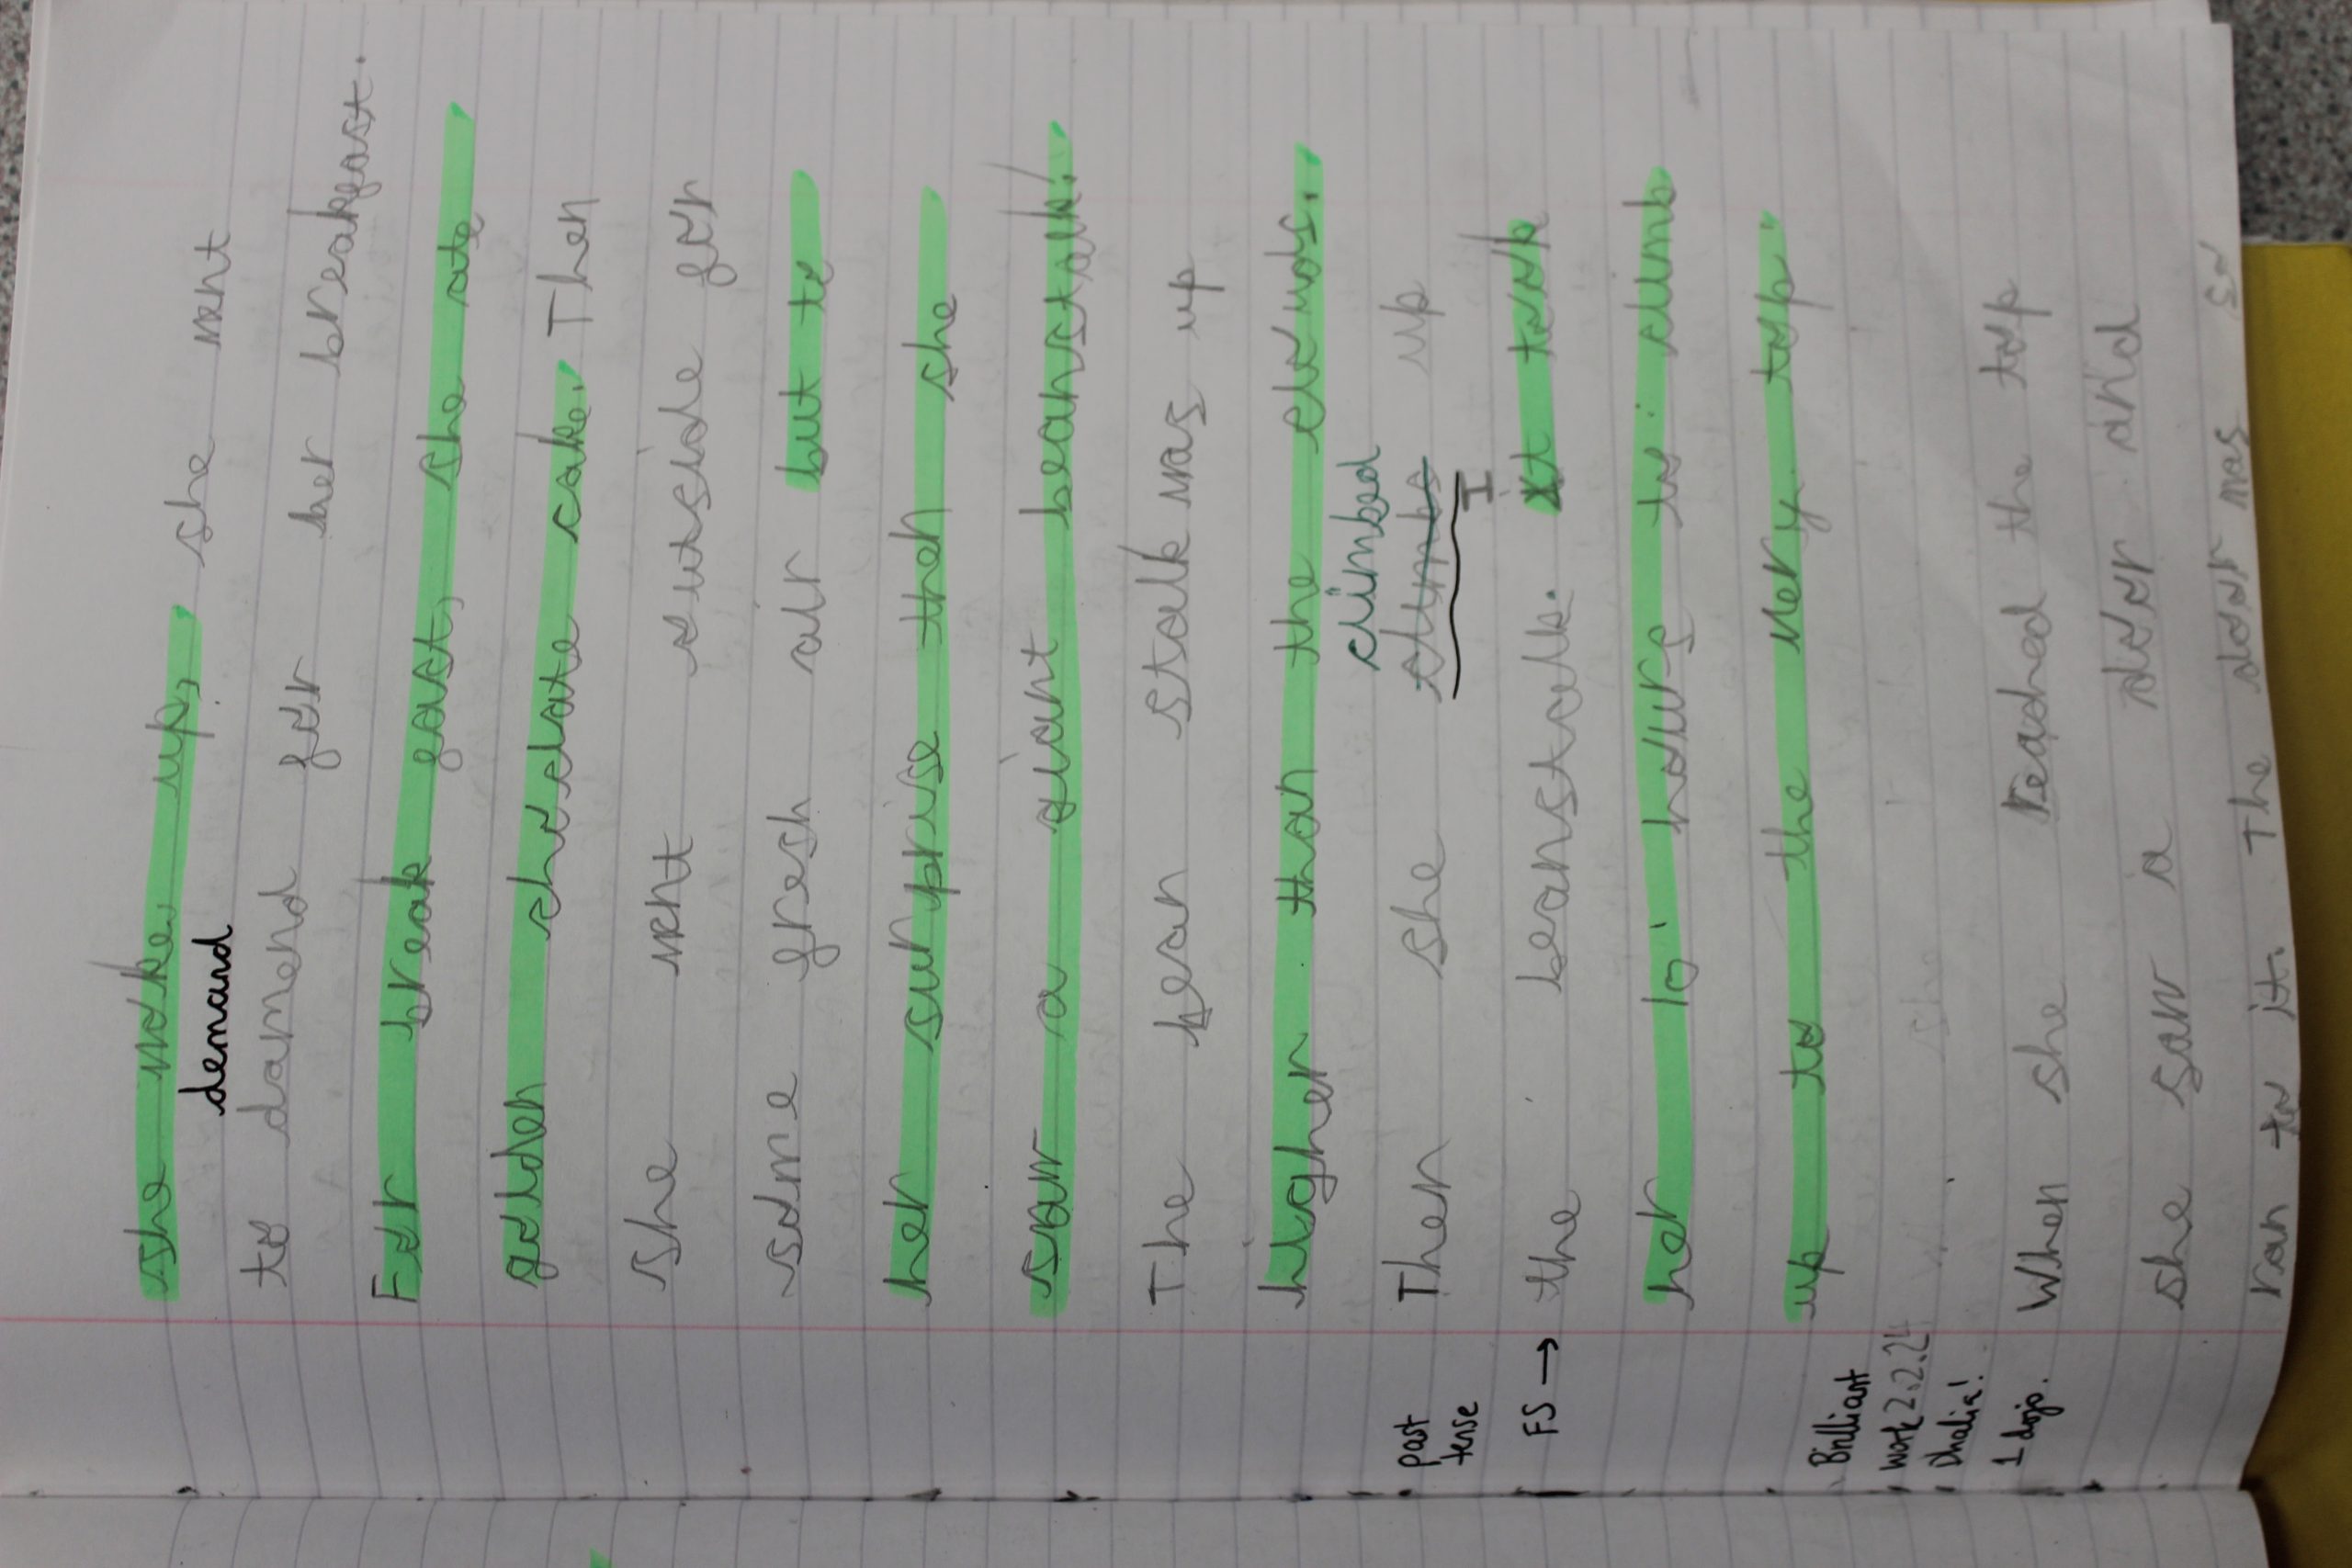 she woke up, she went
demand
to damend for her breakfast.
For break fast, she ate
golden choclate cake. Then
she went outside for
some fresh air but to
her surprise then she
saw a giant beanstalk!
The bean stalk was up
higher than the clouds.
climbed
past tense
Then she climbs up
I
FS → the beanstalk. it took
her 10 hours to climb
up to the very top
Brilliant
work 2.2.24
Dhalia!
she
1 dojo.
When she reached the top
she saw a door and
ran to it. The door was so